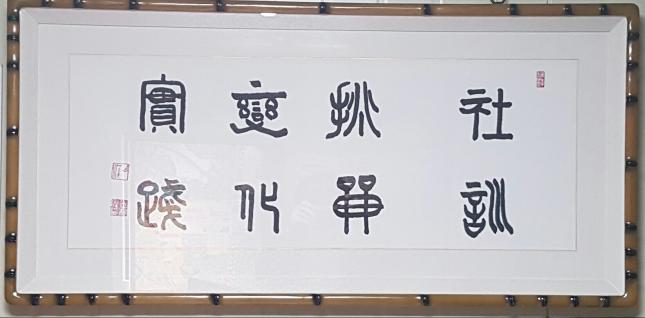 社訓
挑戰
變化
實踐